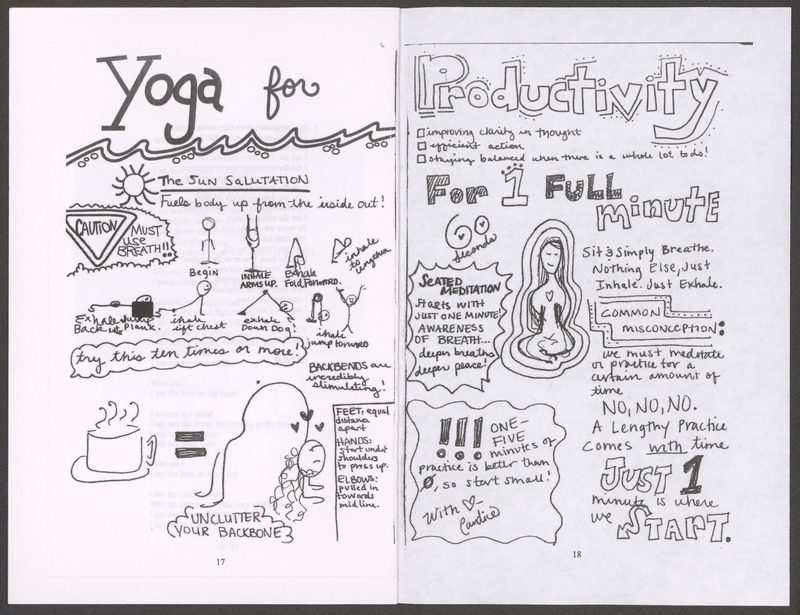 Yoga for
The SUN SALUTATION
Fuels body up from the inside out!
CAUTION
MUST
use
BREATH!!
Begin
INHALE
ARMS UP.
Exhale
Fold Forward.
inhale
to
lengthen
Exhale Jump
Back into Plank.
inhale
lift chest
exhale
Down Dog
inhale
jump forward
try this ten times or more!
BACKBENDS are
incredibly
stimulating!
=
FEET: equal
distance
apart
HANDS:
start under
shoulders
to press up.
ELBOWS:
pulled in
towards
midline.
UNCLUTTER
YOUR BACKBONE
17
Productivity
improving clarity in thought
efficient action
staying balanced when there is a whole lot to do!
For 1 FULL
minute
60
seconds
SEATED
MEDITATION
Starts WITH
JUST ONE MINUTE
AWARENESS
OF BREATH...
deeper breaths
deeper peace!
Sit & Simply Breathe.
Nothing Else, Just
Inhale. Just Exhale.
COMMON
MISCONCEPTION:
we must meditate
or practice for a
certain amount of
time
NO, NO, NO.
A Lengthy Practice
comes with time
JUST 1
minute is where
we START.
!!! ONE-
FIVE
minutes of
practice is better than
0, so start small!
With ♡
Candice
18